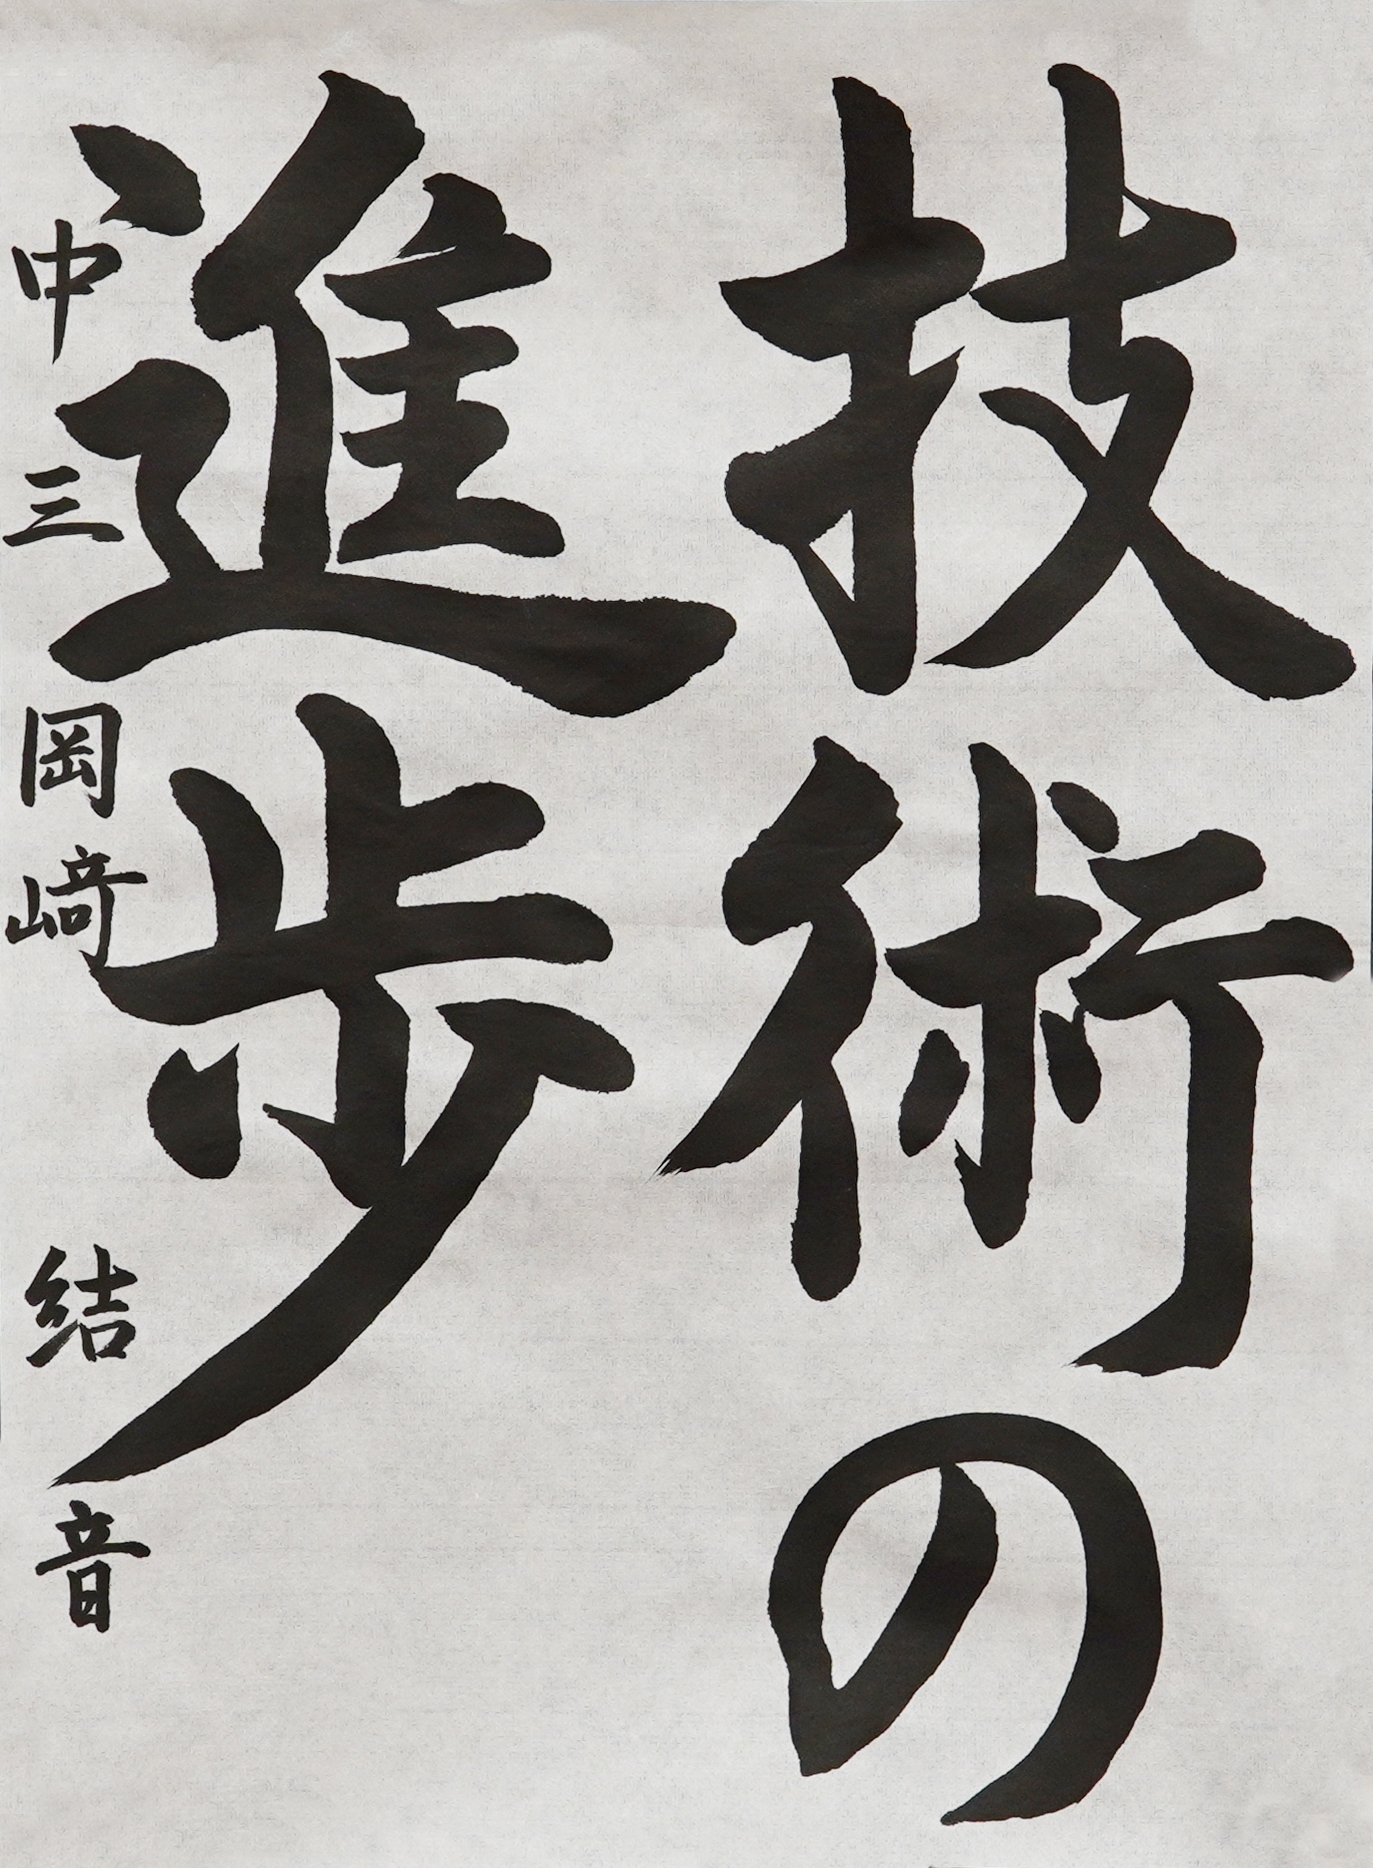 技術の
進歩
中三 岡﨑 結音